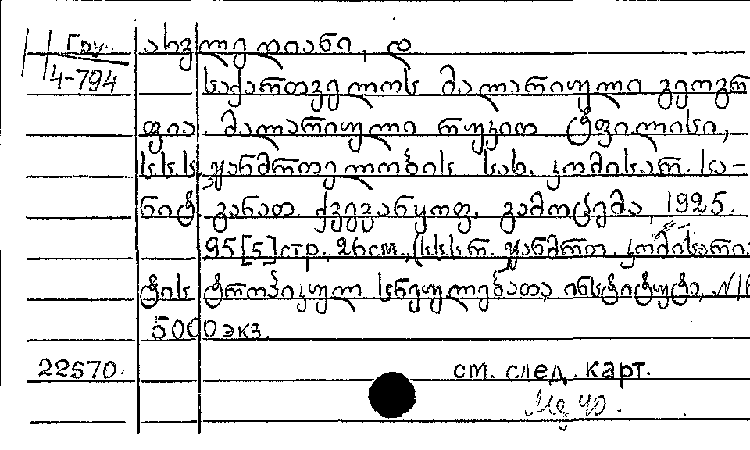 Гру. ასვლედიანი, დ
4-794 საქართველოს მალარიული გეოგრ
ფია მალარიული რუკით ტფილისი,
ს.ს.ს.ს. ჯანმრთელობის სახ. კომისარ. სა-
ნიტ. განათ. ქვეგანყოფ. გამოცემა, 1925.
95[5]стр. 26см., (სსსრ. ჯანმრთ. კომისარია
ტის ტროპიკულ სნეულებათა ინსტიტუტი, №16
5000 экз.
22570. см. след. карт.